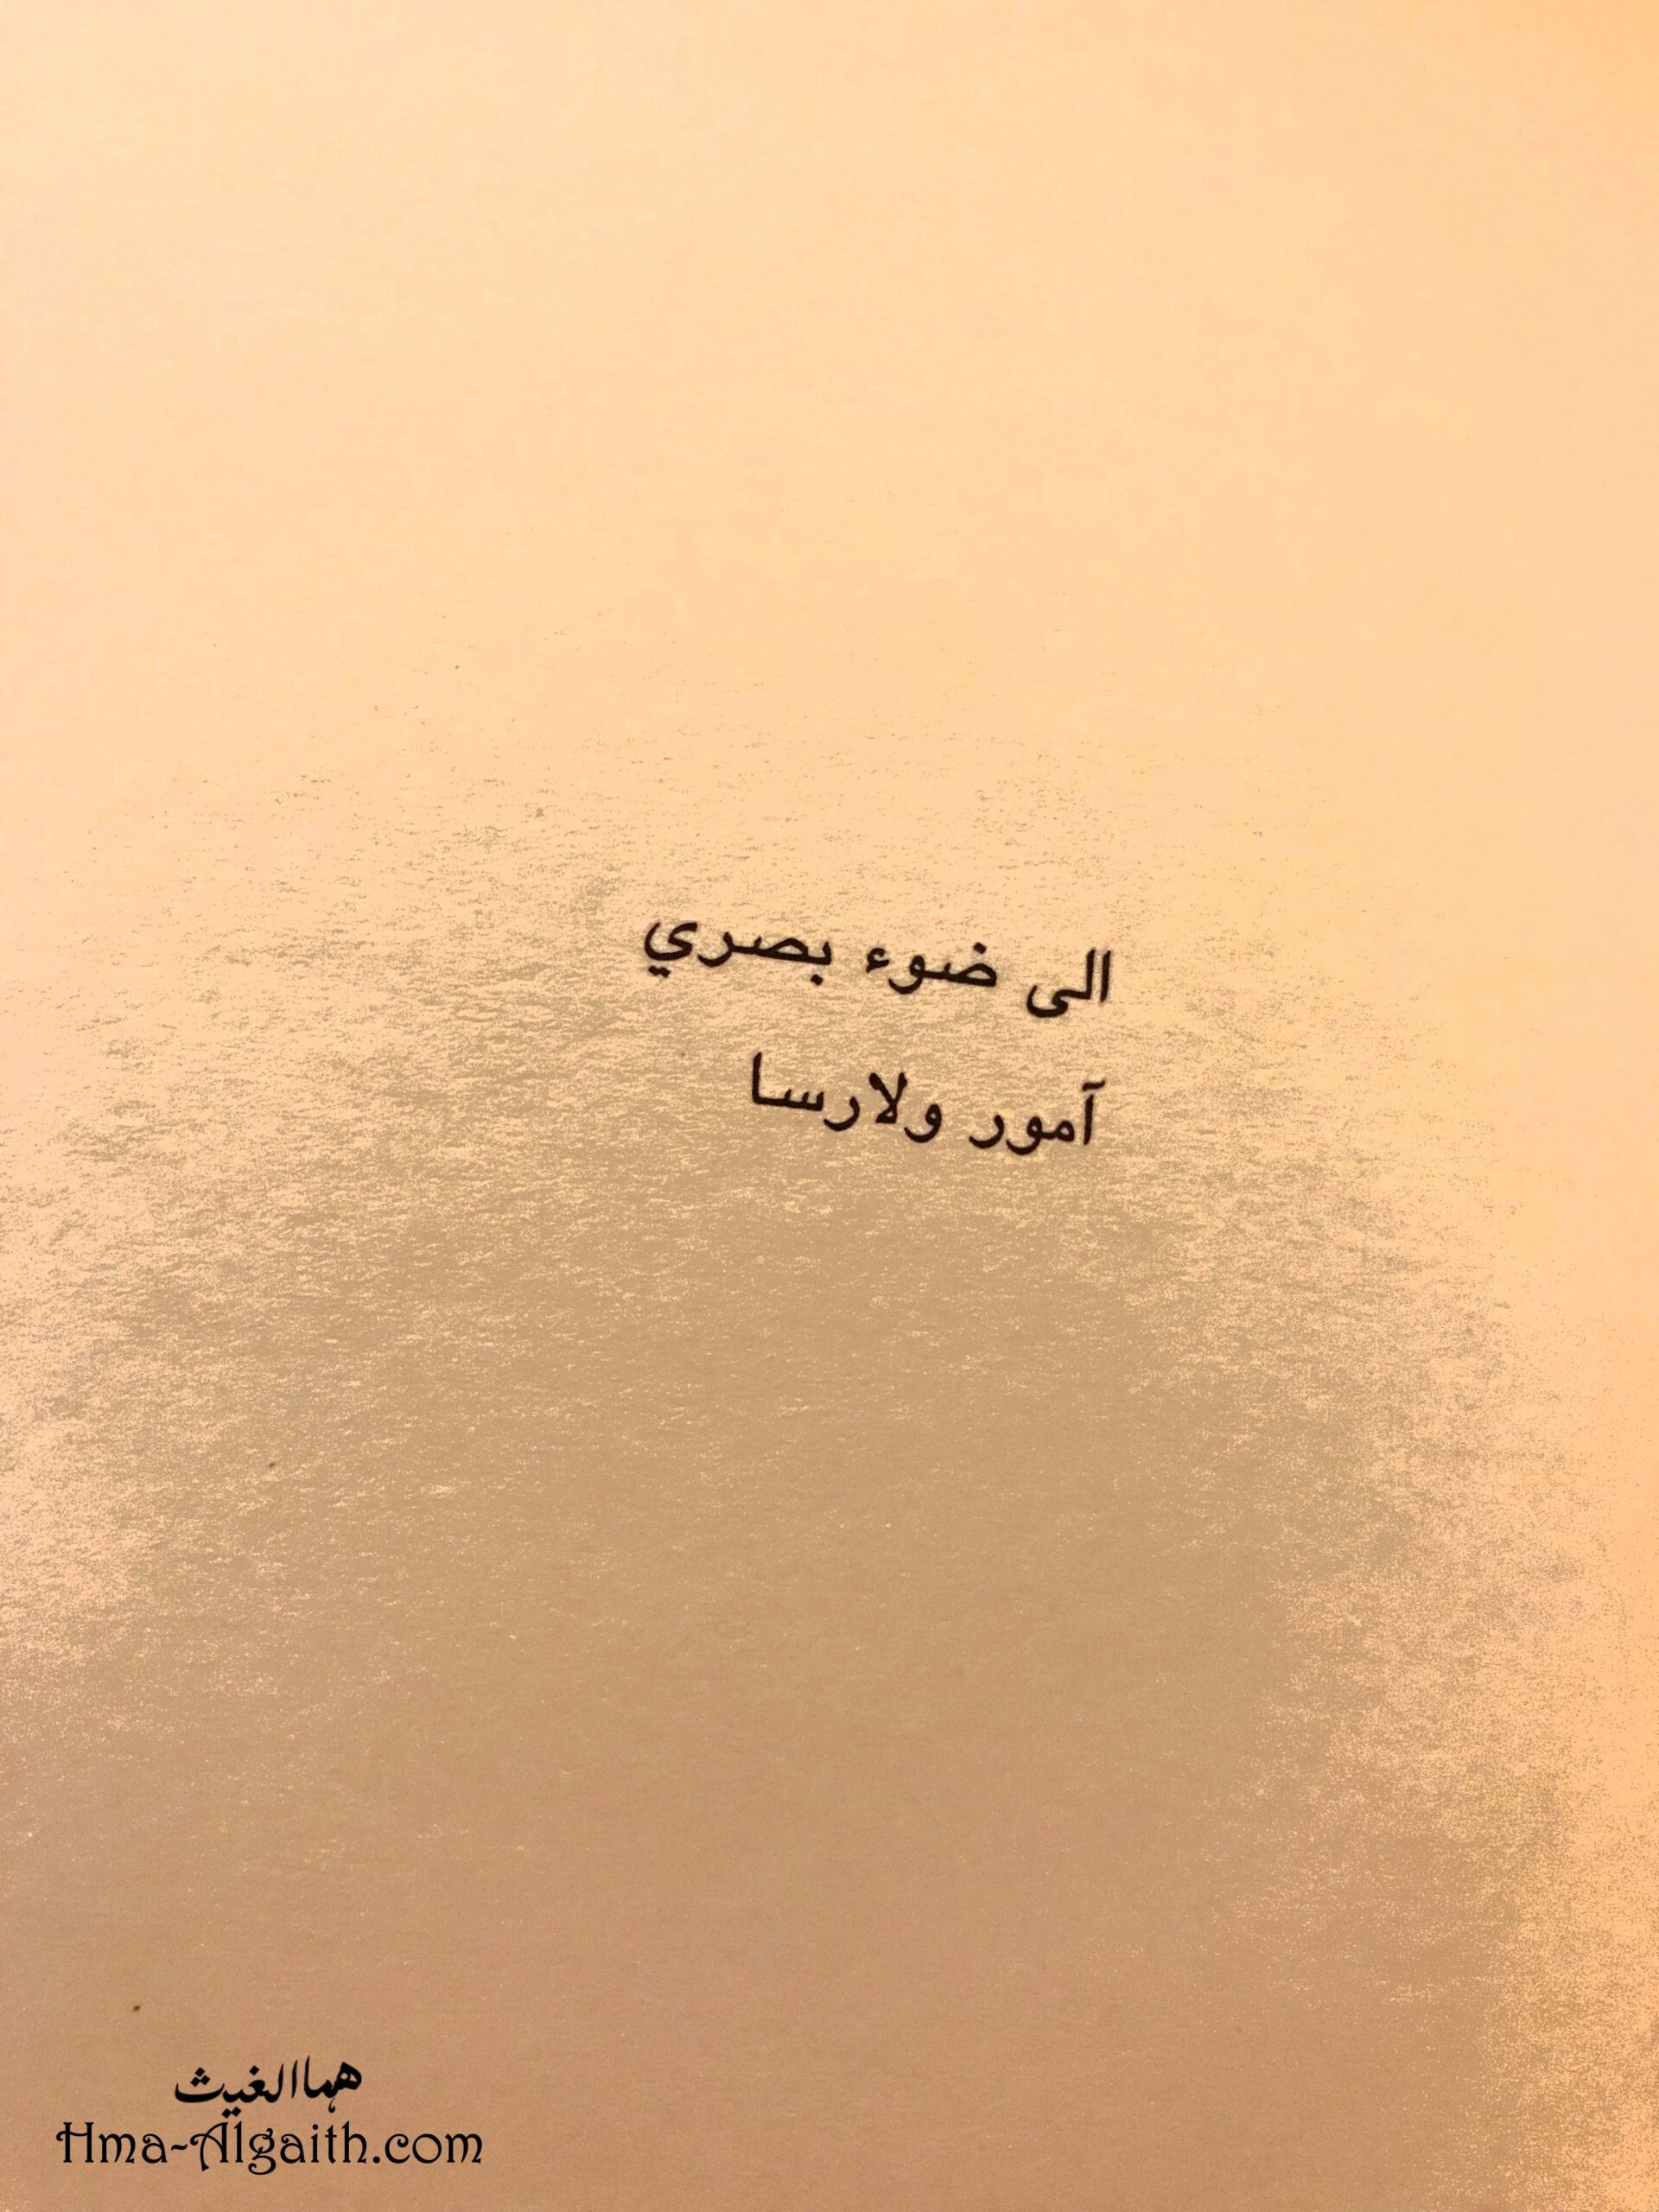 الى ضوء بصري
آمور ولارسا
هماالغيث
Hma-Algaith.com